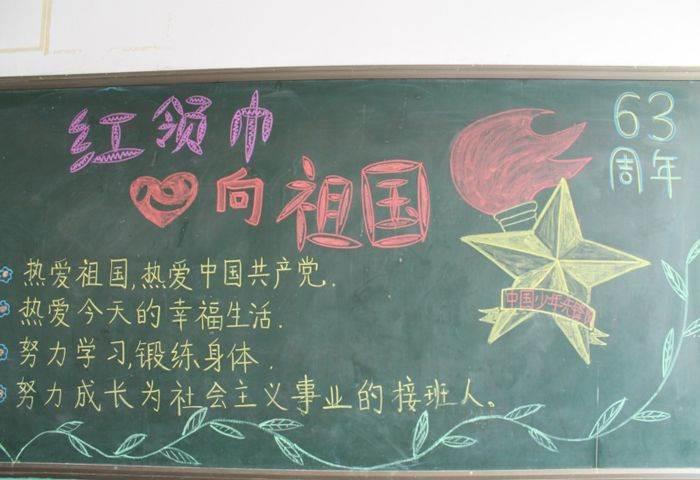 红领巾
向祖国
63
周年
中国少年先锋队
热爱祖国,热爱中国共产党.
热爱今天的幸福生活.
努力学习,锻练身体.
努力成长为社会主义事业的接班人。